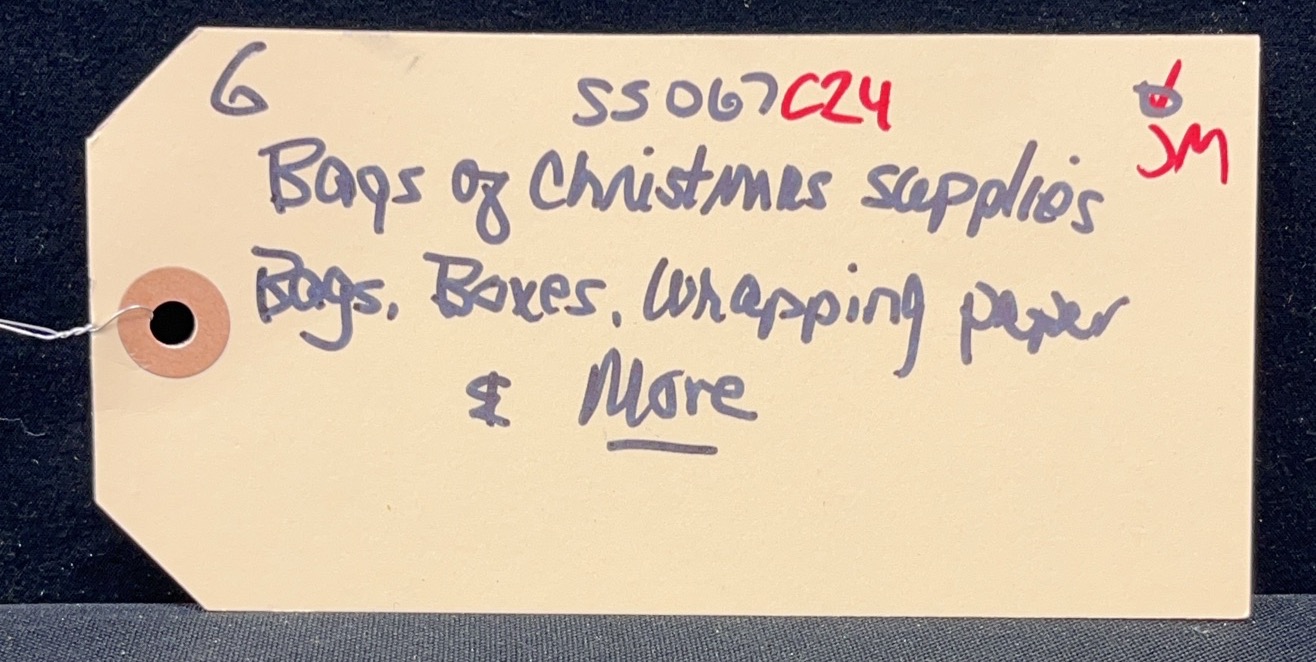 6 SS067C24
JM
Bags of Christmas supplies
Bags, Boxes, Wrapping paper
& More